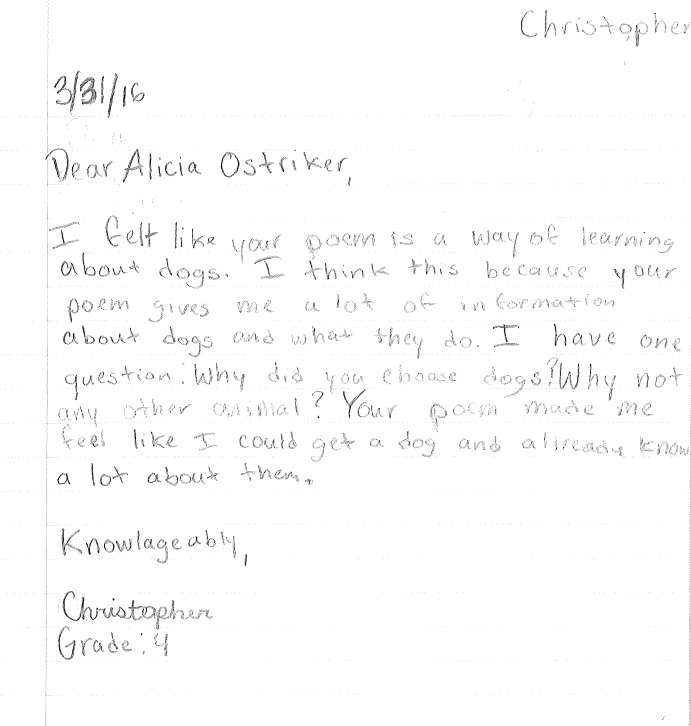 Christopher
3/31/16
Dear Alicia Ostriker,
I felt like your poem is a way of learning
about dogs. I think this because your
poem gives me a lot of information
about dogs and what they do. I have one
question: Why did you choose dogs? Why not
any other animal? Your poem made me
feel like I could get a dog and alireade know
a lot about them.
Knowlageably,
Christopher
Grade: 4